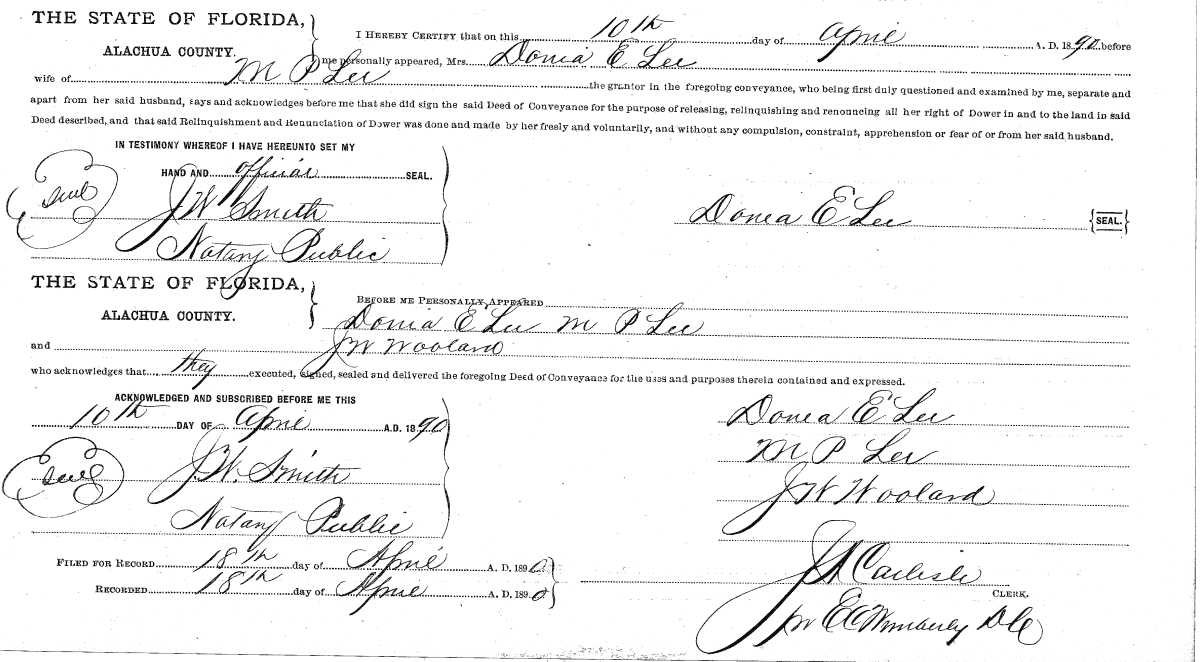 THE STATE OF FLORIDA,
ALACHUA COUNTY.
I HEREBY CERTIFY that on this 10th day of April A. D. 1890 before
me personally appeared, Mrs. Donia E Lee
wife of M P Lee the grantor in the foregoing conveyance, who being first duly questioned and examined by me, separate and
apart from her said husband, says and acknowledges before me that she did sign the said Deed of Conveyance for the purpose of releasing, relinquishing and renouncing all her right of Dower in and to the land in said
Deed described, and that said Relinquishment and Renunciation of Dower was done and made by her freely and voluntarily, and without any compulsion, constraint, apprehension or fear of or from her said husband.
IN TESTIMONY WHEREOF I HAVE HEREUNTO SET MY
HAND AND official SEAL.
Seal
J W Smith
Notary Public
Donia E Lee
SEAL.
THE STATE OF FLORIDA,
ALACHUA COUNTY.
BEFORE ME PERSONALLY APPEARED
Donia E Lee M P Lee
and J W Woolard
who acknowledges that they executed, signed, sealed and delivered the foregoing Deed of Conveyance for the uses and purposes therein contained and expressed.
ACKNOWLEDGED AND SUBSCRIBED BEFORE ME THIS
10th DAY OF April A.D. 1890
Seal
J. W. Smith
Notary Public
Donia E Lee
M P Lee
J W Woolard
FILED FOR RECORD 18th day of April A. D. 1890
RECORDED 18th day of April A. D. 1890
Carlisle
CLERK.
Wimberly DC